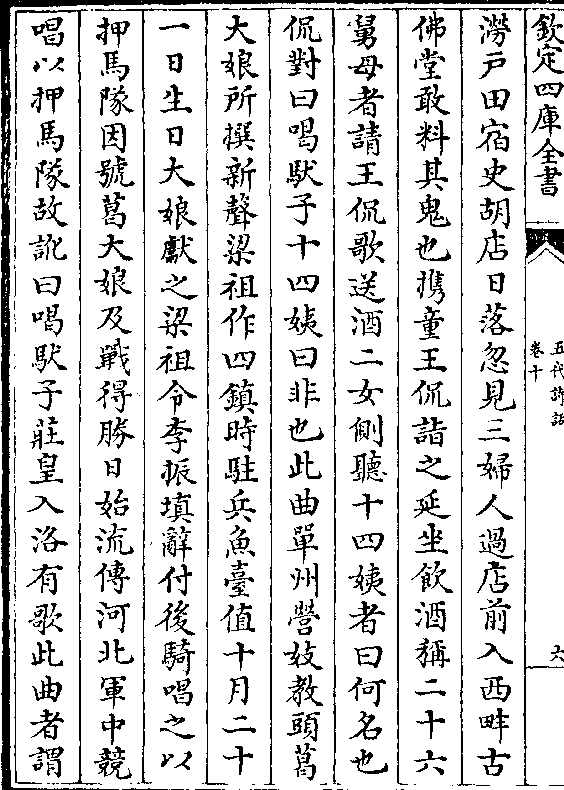 欽定四庫全書
五代詩話
卷十
六
澇戸田宿史胡店日落忽見三婦人過店前入西畔古
佛堂敢料其鬼也携童王侃詣之延坐飲酒稱二十六
舅母者請王侃歌送酒二女側聽十四姨者曰何名也
侃對曰喝馱子十四姨曰非也此曲單州營妓教頭葛
大娘所撰新聲梁祖作四鎮時駐兵魚臺值十月二十
一日生日大娘獻之梁祖令李振填辭付後騎唱之以
押馬隊因號葛大娘及戰得勝日始流傳河北軍中競
唱以押馬隊故訛曰喝馱子莊皇入洛有歌此曲者謂